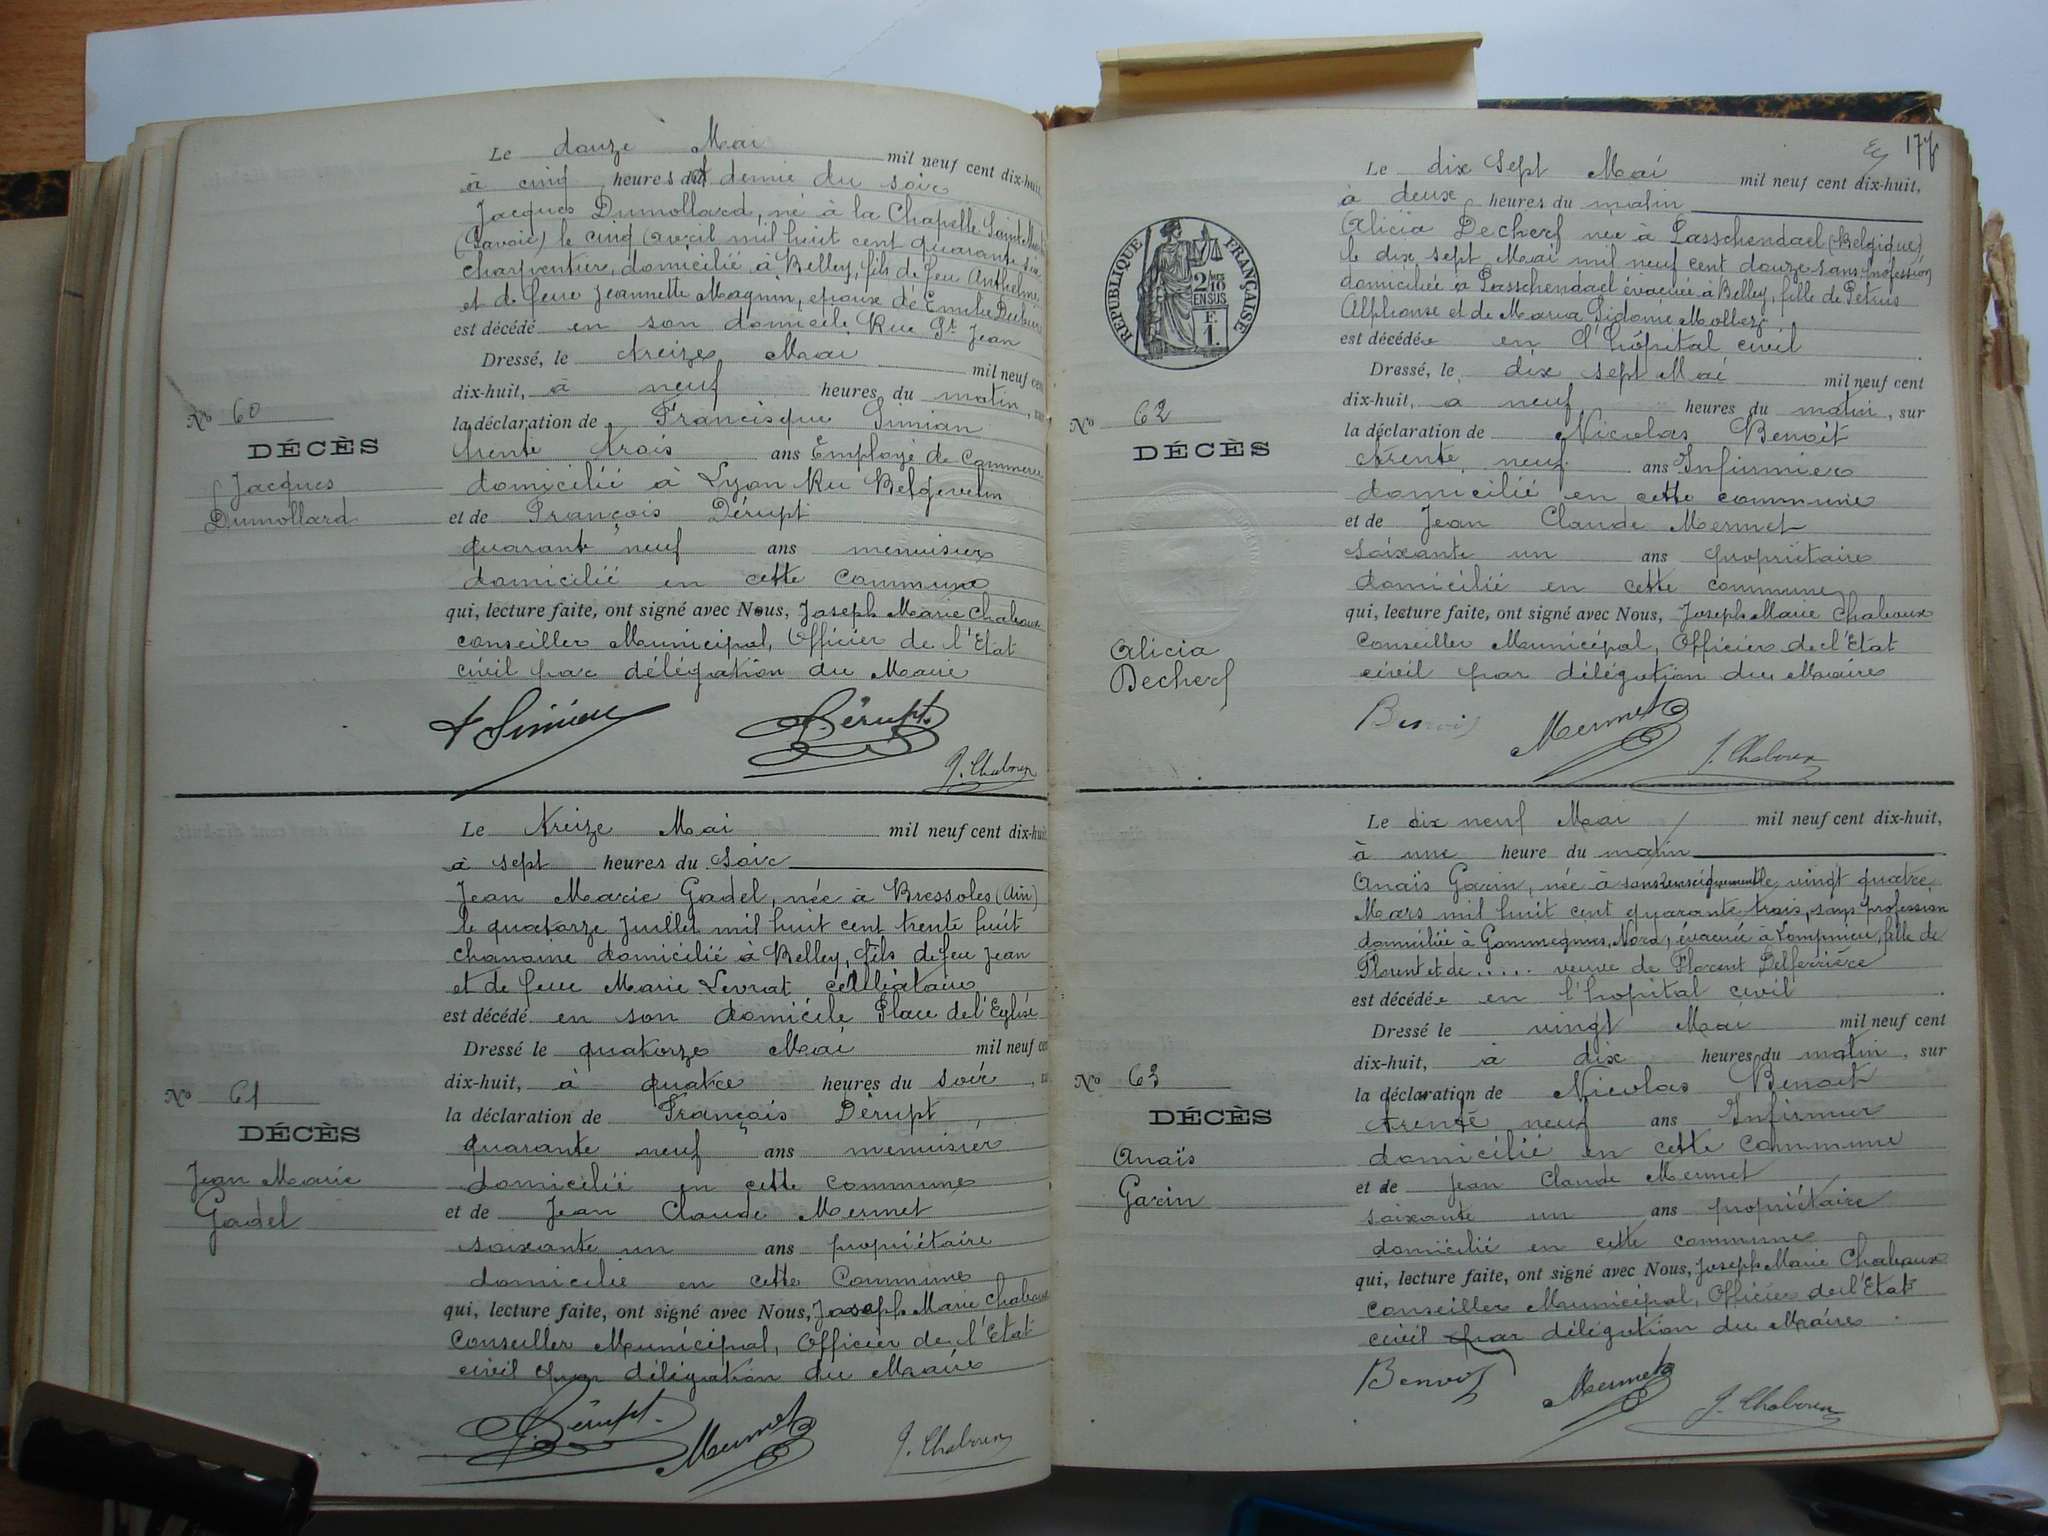 Le douze Mai mil neuf cent dix-huit,
à cinq heures et demie du soir
Jacques Dumollard, né à la Chapelle Saint
(Savoie) le cinq avril mil huit cent quarante six
charpentier, domicilié à Belley, fils de feu Anthelme
et de feue Jeannette Magnin, époux de Emelie
est décédé en son domicile Rue St Jean
Dressé, le treize Mai mil neuf cent
dix-huit, à neuf heures du matin,
No 60
DÉCÈS
Jacques
Dumollard
la déclaration de Francisque Simian
trente trois ans Employé de Commerce
domicilié à Lyon Rue
et de François Dérupt
quarante neuf ans menuisier
domicilié en cette commune
qui, lecture faite, ont signé avec Nous, Joseph Marie Chaboux
conseiller Municipal, Officier de l'Etat
civil par délégation du Maire
F Simian
Dérupt
J. Chaboux
Le treize Mai mil neuf cent dix-huit
à sept heures du soir
Jean Marie Gadel, née à Bressoles (Ain)
le quatorze Juillet mil huit cent trente huit
chanoine domicilié à Belley, fils de feu Jean
et de feue Marie Levrat célibataire
est décédé en son domicile Place de l'Eglise
Dressé le quatorze Mai mil neuf ce
dix-huit, à quatre heures du soir,
No 61
DÉCÈS
Jean Marie
Gadel
la déclaration de François Dérupt
quarante neuf ans menuisier
domicilié en cette commune
et de Jean Claude Mermet
soixante un ans propriétaire
domicilié en cette Commune
qui, lecture faite, ont signé avec Nous, Joseph Marie Chaboux
Conseiller Municipal, Officier de l'Etat
civil par délégation du Maire
Dérupt
Mermet
J. Chaboux
177
Le dix sept Mai mil neuf cent dix-huit,
à deux heures du matin
Alicia Decherf née à Passchendael (Belgique)
le dix sept Mai mil neuf cent douze sans profession
domiciliée à Passchendael évacuée à Belley, fille de Petrus
Alphonse et de Maria Sidonie
est décédée en l'hôpital civil
Dressé, le dix sept Mai mil neuf cent
dix-huit, à neuf heures du matin, sur
RÉPUBLIQUE FRANÇAISE
2/10 EN SUS
F. 1.
No 62
DÉCÈS
Alicia
Decherf
la déclaration de Nicolas Benoit
trente neuf ans Infirmier
domicilié en cette commune
et de Jean Claude Mermet
soixante un ans propriétaire
domicilié en cette commune
qui, lecture faite, ont signé avec Nous, Joseph Marie Chaboux
Conseiller Municipal, Officier de l'Etat
civil par délégation du Maire
Benoit
Mermet
J. Chaboux
Le dix neuf Mai mil neuf cent dix-huit,
à une heure du matin
Anaïs Garin, née à sans renseignement le vingt quatre
Mars mil huit cent quarante trois, sans profession
domiciliée à Gommegnies, Nord, évacuée à Lompnieu, fille de
Florent et de ..... veuve de Florent Delferrière
est décédée en l'hopital civil
Dressé le vingt Mai mil neuf cent
dix-huit, à dix heures du matin, sur
No 63
DÉCÈS
Anaïs
Garin
la déclaration de Nicolas Benoit
trente neuf ans Infirmier
domicilié en cette commune
et de Jean Claude Mermet
soixante un ans propriétaire
domicilié en cette commune
qui, lecture faite, ont signé avec Nous, Joseph Marie Chaboux
Conseiller Municipal, Officier de l'Etat
civil par délégation du Maire
Benoit
Mermet
J. Chaboux